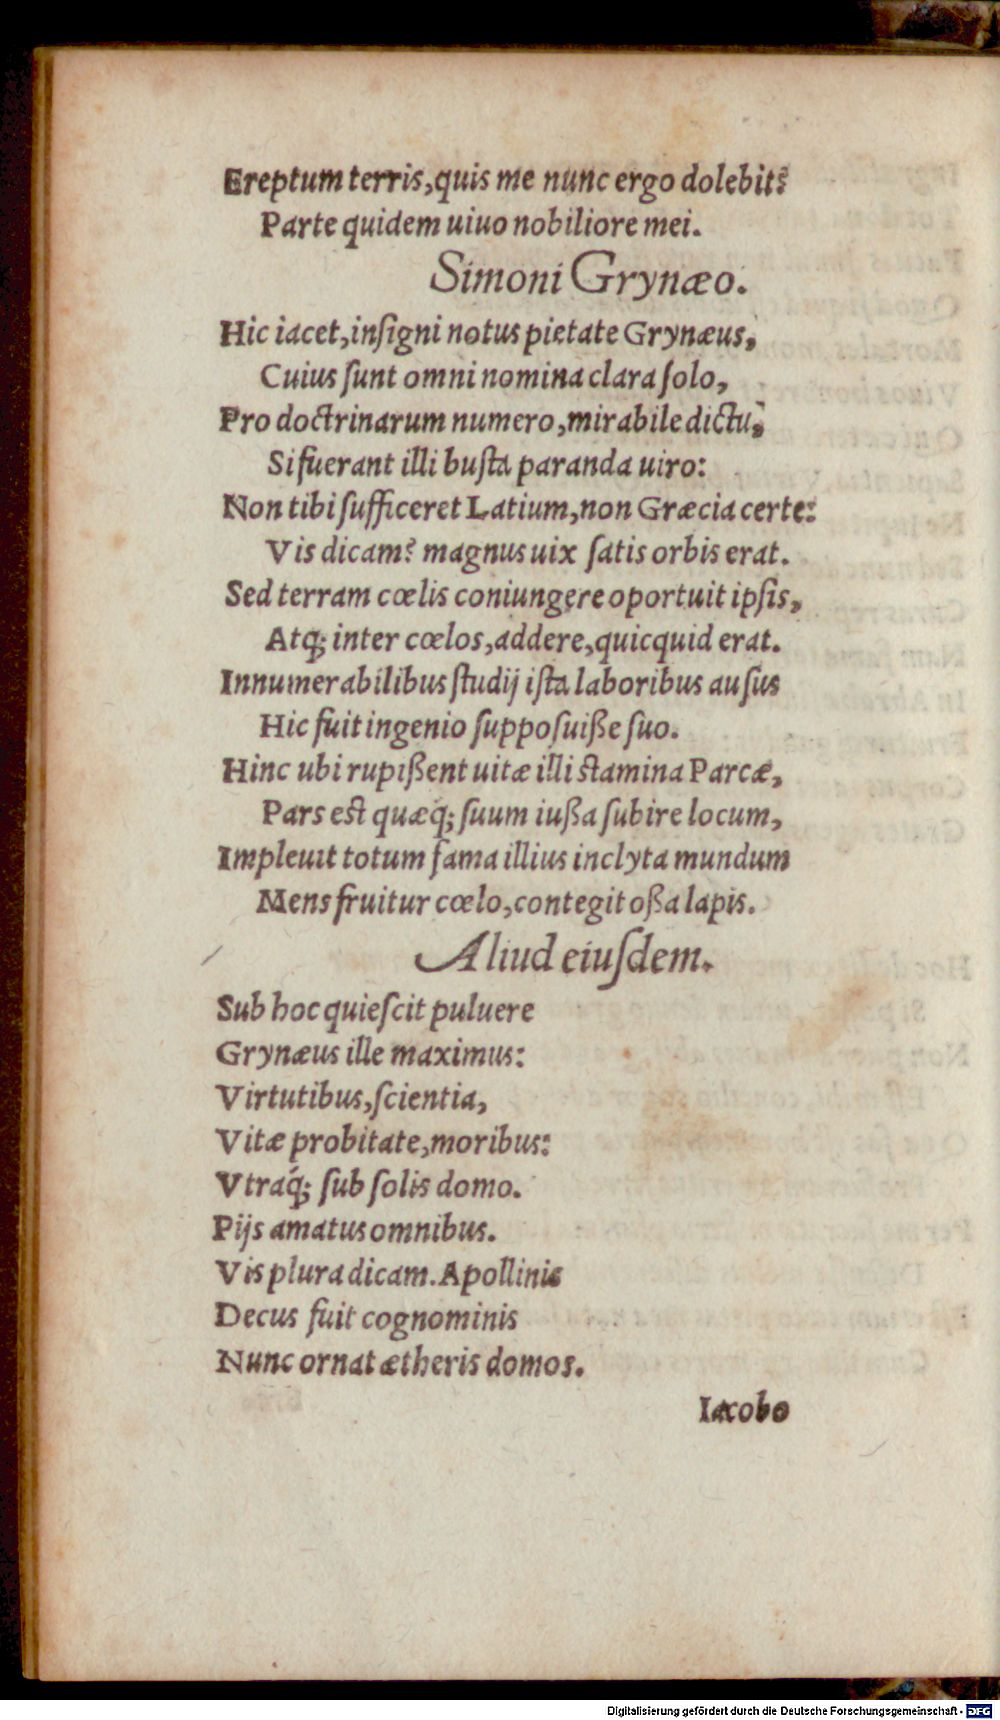 Ereptum terris, quis me nunc ergo dolebit?
Parte quidem uiuo nobiliore mei.
Simoni Grynæo.
Hic iacet, insigni notus pietate Grynæus,
Cuius sunt omni nomina clara solo,
Pro doctrinarum numero, mirabile dictu,
Si fuerant illi busta paranda uiro:
Non tibi sufficeret Latium, non Græcia certe:
Vis dicam? magnus uix satis orbis erat.
Sed terram cœlis coniungere oportuit ipsis,
Atq; inter cœlos, addere, quicquid erat.
Innumerabilibus studij ista laboribus ausus
Hic fuit ingenio supposuiße suo.
Hinc ubi rupißent uitæ illi stamina Parcæ,
Pars est quæq; suum iußa subire locum,
Impleuit totum fama illius inclyta mundum
Mens fruitur cœlo, contegit oßa lapis.
Aliud eiusdem.
Sub hoc quiescit puluere
Grynæus ille maximus:
Virtutibus, scientia,
Vitæ probitate, moribus:
Vtráq; sub solis domo.
Pijs amatus omnibus.
Vis plura dicam. Apollinis
Decus fuit cognominis
Nunc ornat ætheris domos.
Iacobo
Digitalisierung gefördert durch die Deutsche Forschungsgemeinschaft - DFG